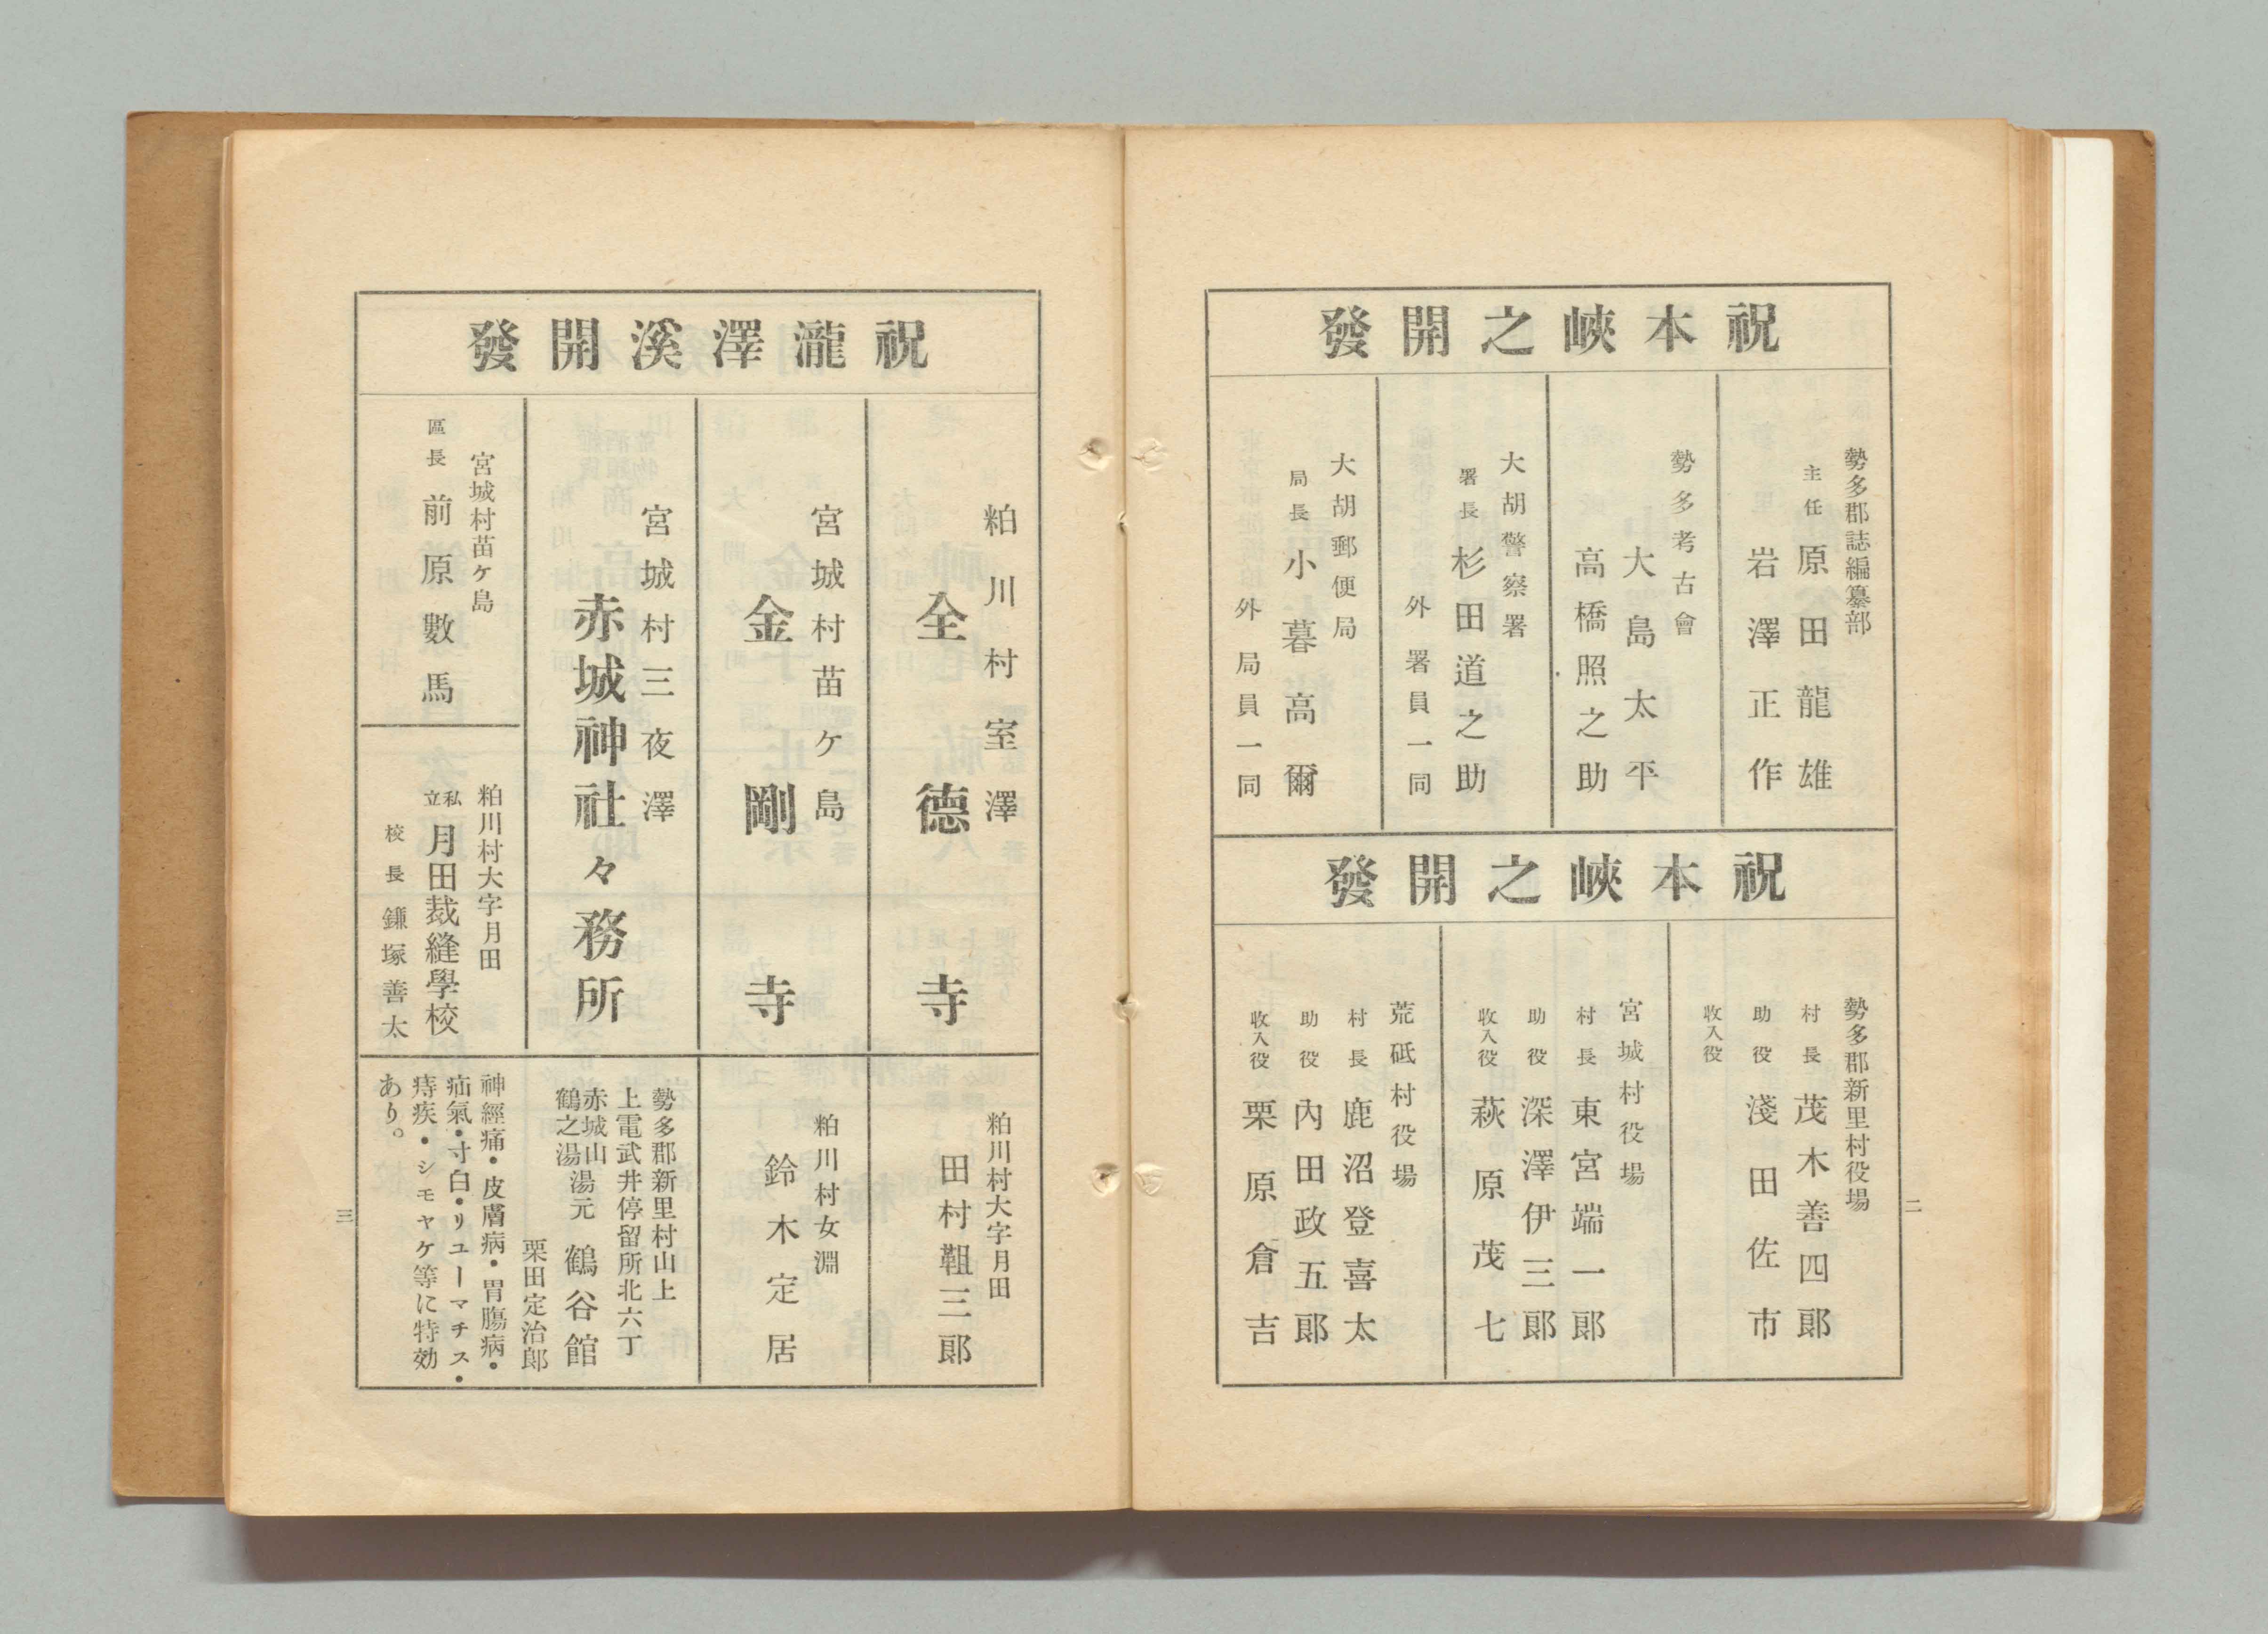 祝本峽之開發
勢多郡誌編纂部
主任 原田龍雄
岩澤正作
勢多考古會
大島太平
高橋照之助
大胡警察署
署長 杉田道之助
外署員一同
大胡郵便局
局長 小暮高爾
外局員一同
祝本峽之開發
勢多郡新里村役場
村長 茂木善四郎
助役 淺田佐市
收入役
宮城村役場
村長 東宮端一郎
助役 深澤伊三郎
收入役 萩原茂七
荒砥村役場
村長 鹿沼登喜太
助役 內田政五郎
收入役 栗原倉吉
二
祝瀧澤溪開發
粕川村室澤
全德寺
宮城村苗ケ島
金剛寺
宮城村三夜澤
赤城神社々務所
宮城村苗ケ島
區長 前原數馬
粕川村大字月田
私立 月田裁縫學校
校長 鎌塚善太
粕川村大字月田
田村靻三郎
粕川村女淵
鈴木定居
勢多郡新里村山上
上電武井停留所北六丁
赤城山鶴之湯湯元 鶴谷館
栗田定治郎
神經痛・皮膚病・胃腸病・
疝氣・寸白・リユーマチス・
痔疾・シモヤケ等に特効
あり。
三